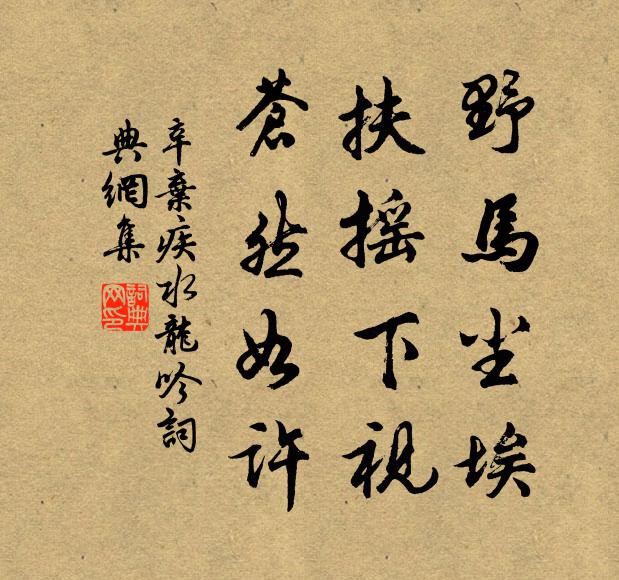 野馬尘埃
扶摇下視
蒼然如许
辛棄疾水龍吟詞
典網集
詞典
网印